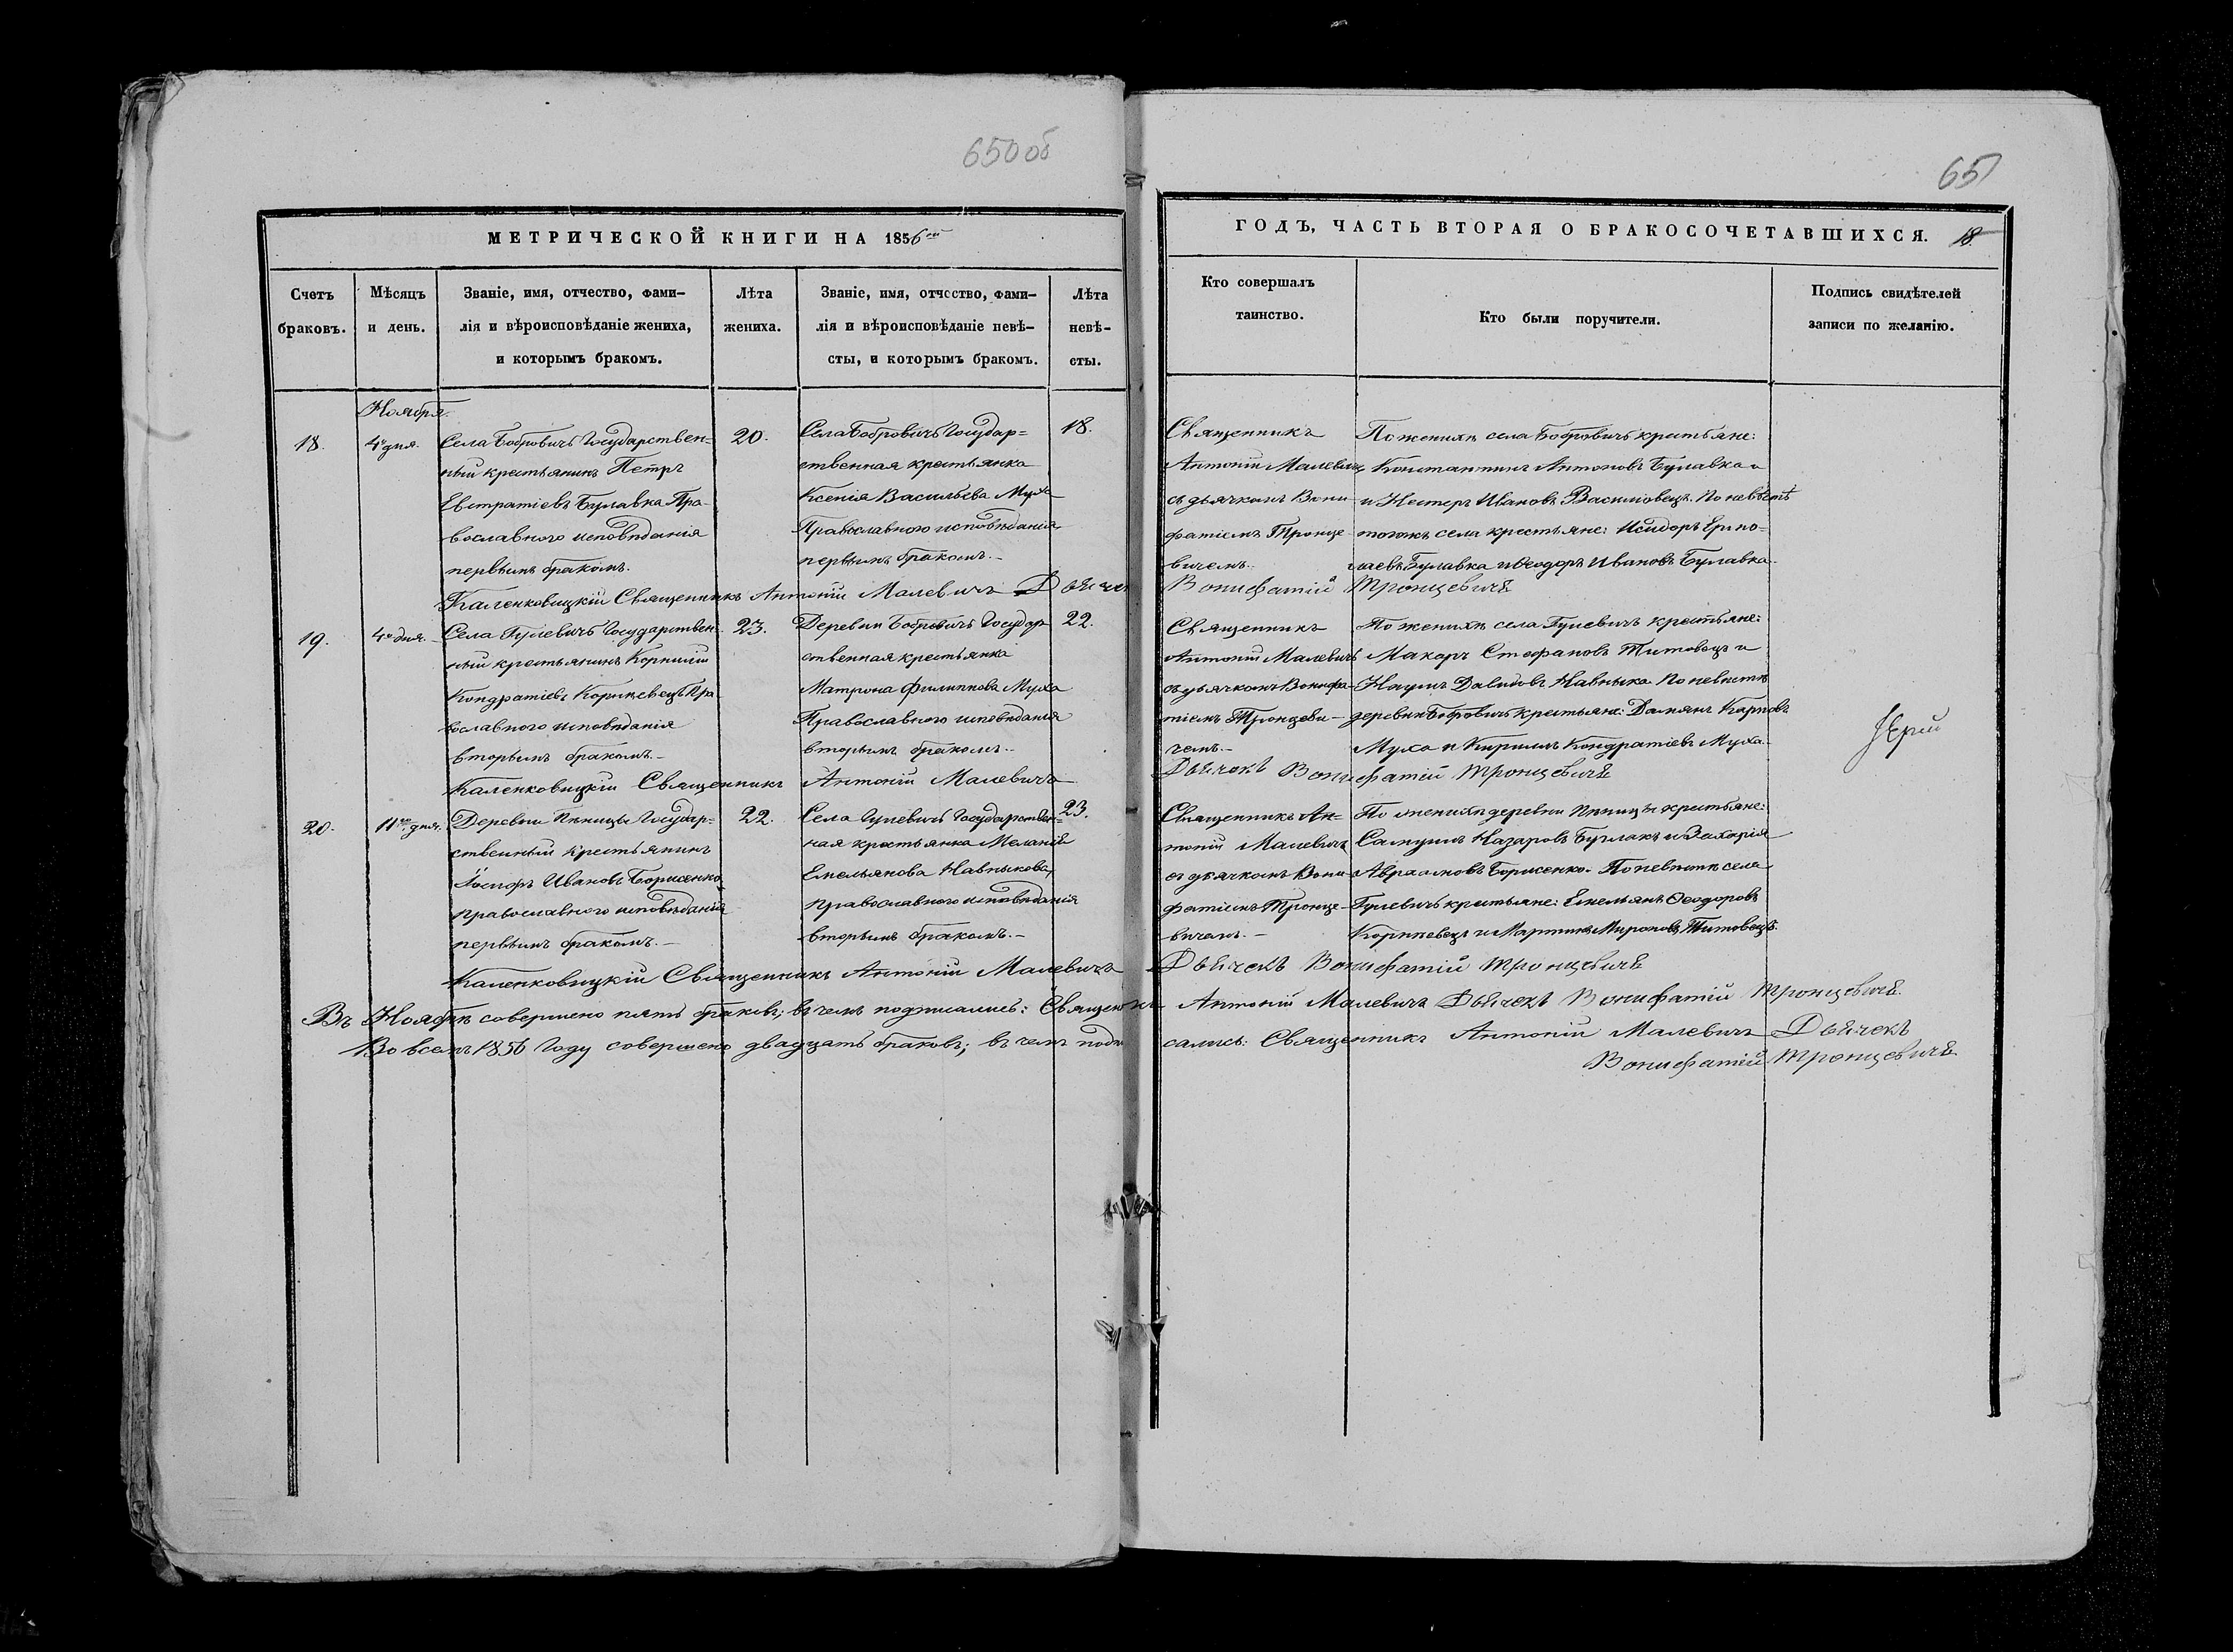 650 об
651
МЕТРИЧЕСКОЙ КНИГИ НА 1856 ой
ГОДЪ, ЧАСТЬ ВТОРАЯ О БРАКОСОЧЕТАВШИХСЯ. 18
Счетъ
браковъ.
Мѣсяцъ
и день.
Званіе, имя, отчество, фами-
лія и вѣроисповѣданіе жениха,
и которымъ бракомъ.
Лѣта
жениха.
Званіе, имя, отчество, фами-
лія и вѣроисповѣданіе невѣ-
сты, и которымъ бракомъ.
Лѣта
невѣ-
сты.
Кто совершалъ
таинство.
Кто были поручители.
Подпись свидѣтелей
записи по желанію.
Ноября.
18.
4го дня.
Села Бобровичъ Государствен=
ный крестьянинъ Петръ
Евстратіевъ Булавка Пра-
вославного исповѣданія
первымъ бракомъ.
20.
Села Бобровичъ Государ=
ственная крестьянка
Ксенія Васильева Муха
Православного исповѣданія
первымъ бракомъ.
18.
Священникъ
Антоній Малевичъ
съ дьячкомъ Вони-
фатіемъ Тронце-
вичемъ.
По женихѣ села Бобровичъ крестьяне:
Константинъ Антоновъ Булавка и
и Нестеръ Ивановъ Василовецъ. По невѣстѣ
тогожъ села крестьяне: Исидоръ Ермо=
лаевъ Булавка и Ѳеодоръ Ивановъ Булавка.
Каленковицкій Священникъ Антоній Малевичъ Дьячекъ Вонифатій Тронцевичъ
19.
4го дня.
Села Гулевичъ Государствен-
ный крестьянинъ Корнилій
Кондратіевъ Корнѣевецъ Пра-
вославного исповѣданія
вторымъ бракомъ.-
23.
Деревни Бобровичъ Государ-
ственная крестьянка
Матрона Филиппова Муха
Православного исповѣданія
вторымъ бракомъ.-
22.
Священникъ
Антоній Малевичъ
съ дьячкомъ Вонифа-
тіемъ Тронцеви-
чемъ.-
По женихѣ села Гулевичъ крестьяне:
Макаръ Стефановъ Титовецъ и
Наумъ Давидовъ Навныка По невѣстѣ
деревни Бобровичъ крестьяне: Даміянъ Карповъ
Муха и Кирилъ Кондратіевъ Муха.
Іерей
Каленковицкій Священникъ Антоній Малевичъ Дьячекъ Вонифатій Тронцевичъ
20.
11го дня.
Деревни Пѣницы Государ=
ственный крестьянинъ
Іосифъ Ивановъ Борисенко,
православного исповѣданія
первымъ бракомъ.-
22.
Села Гулевичъ Государствен=
ная крестьянка Меланія
Емельянова Навныкова,
православного исповѣданія
вторымъ бракомъ.-
23.
Священникъ Ан-
тоній Малевичъ
съ дьячкомъ Вони-
фатіемъ Тронце-
вичемъ.-
По женихѣ деревни Пѣницъ крестьяне:
Самуилъ Назаровъ Бурлакъ и Захарія
Авраамовъ Борисенко. По невѣстѣ села
Гулевичъ крестьяне: Емельянъ Ѳеодоровъ
Корнѣевецъ и Мартинъ Мироновъ Титовецъ.
Каленковицкій Священникъ Антоній Малевичъ Дьячекъ Вонифатій Тронцевичъ
Въ Ноябрѣ совершено пять браковъ; въ чемъ подписались: Священникъ Антоній Малевичъ Дьячекъ Вонифатій Тронцевичъ.
Во всемъ 1856 году совершено двадцать браковъ; въ чемъ подписались: Священникъ Антоній Малевичъ Дьячекъ
Вонифатій Тронцевичъ